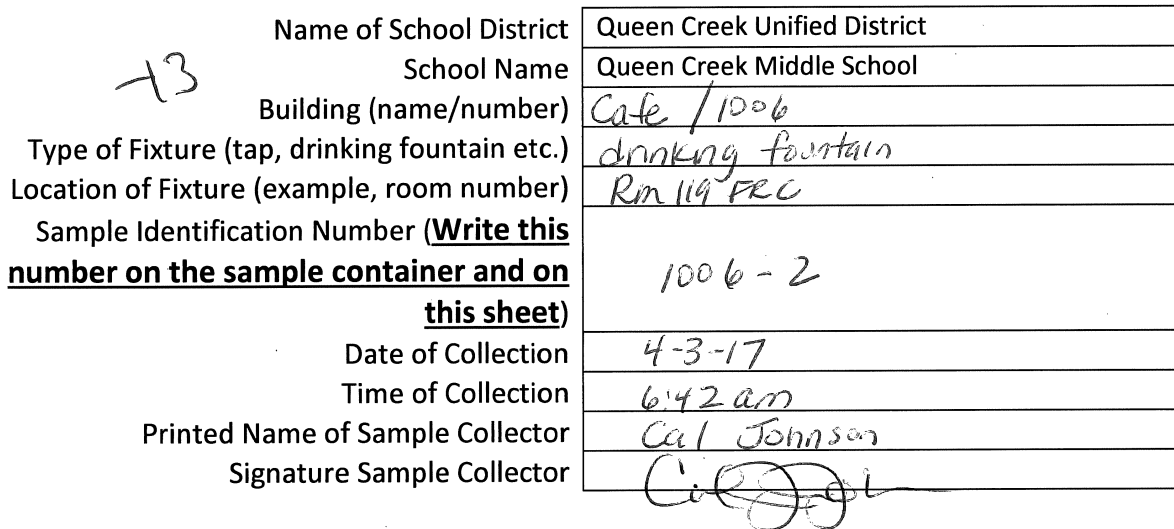 Name of School District Queen Creek Unified District
-13
School Name Queen Creek Middle School
Building (name/number) Cafe / 1006
Type of Fixture (tap, drinking fountain etc.) drinking fountain
Location of Fixture (example, room number) Rm 119 FRC
Sample Identification Number (Write this
number on the sample container and on
this sheet)
1006-2
Date of Collection 4-3-17
Time of Collection 6:42 am
Printed Name of Sample Collector Cal Johnson
Signature Sample Collector